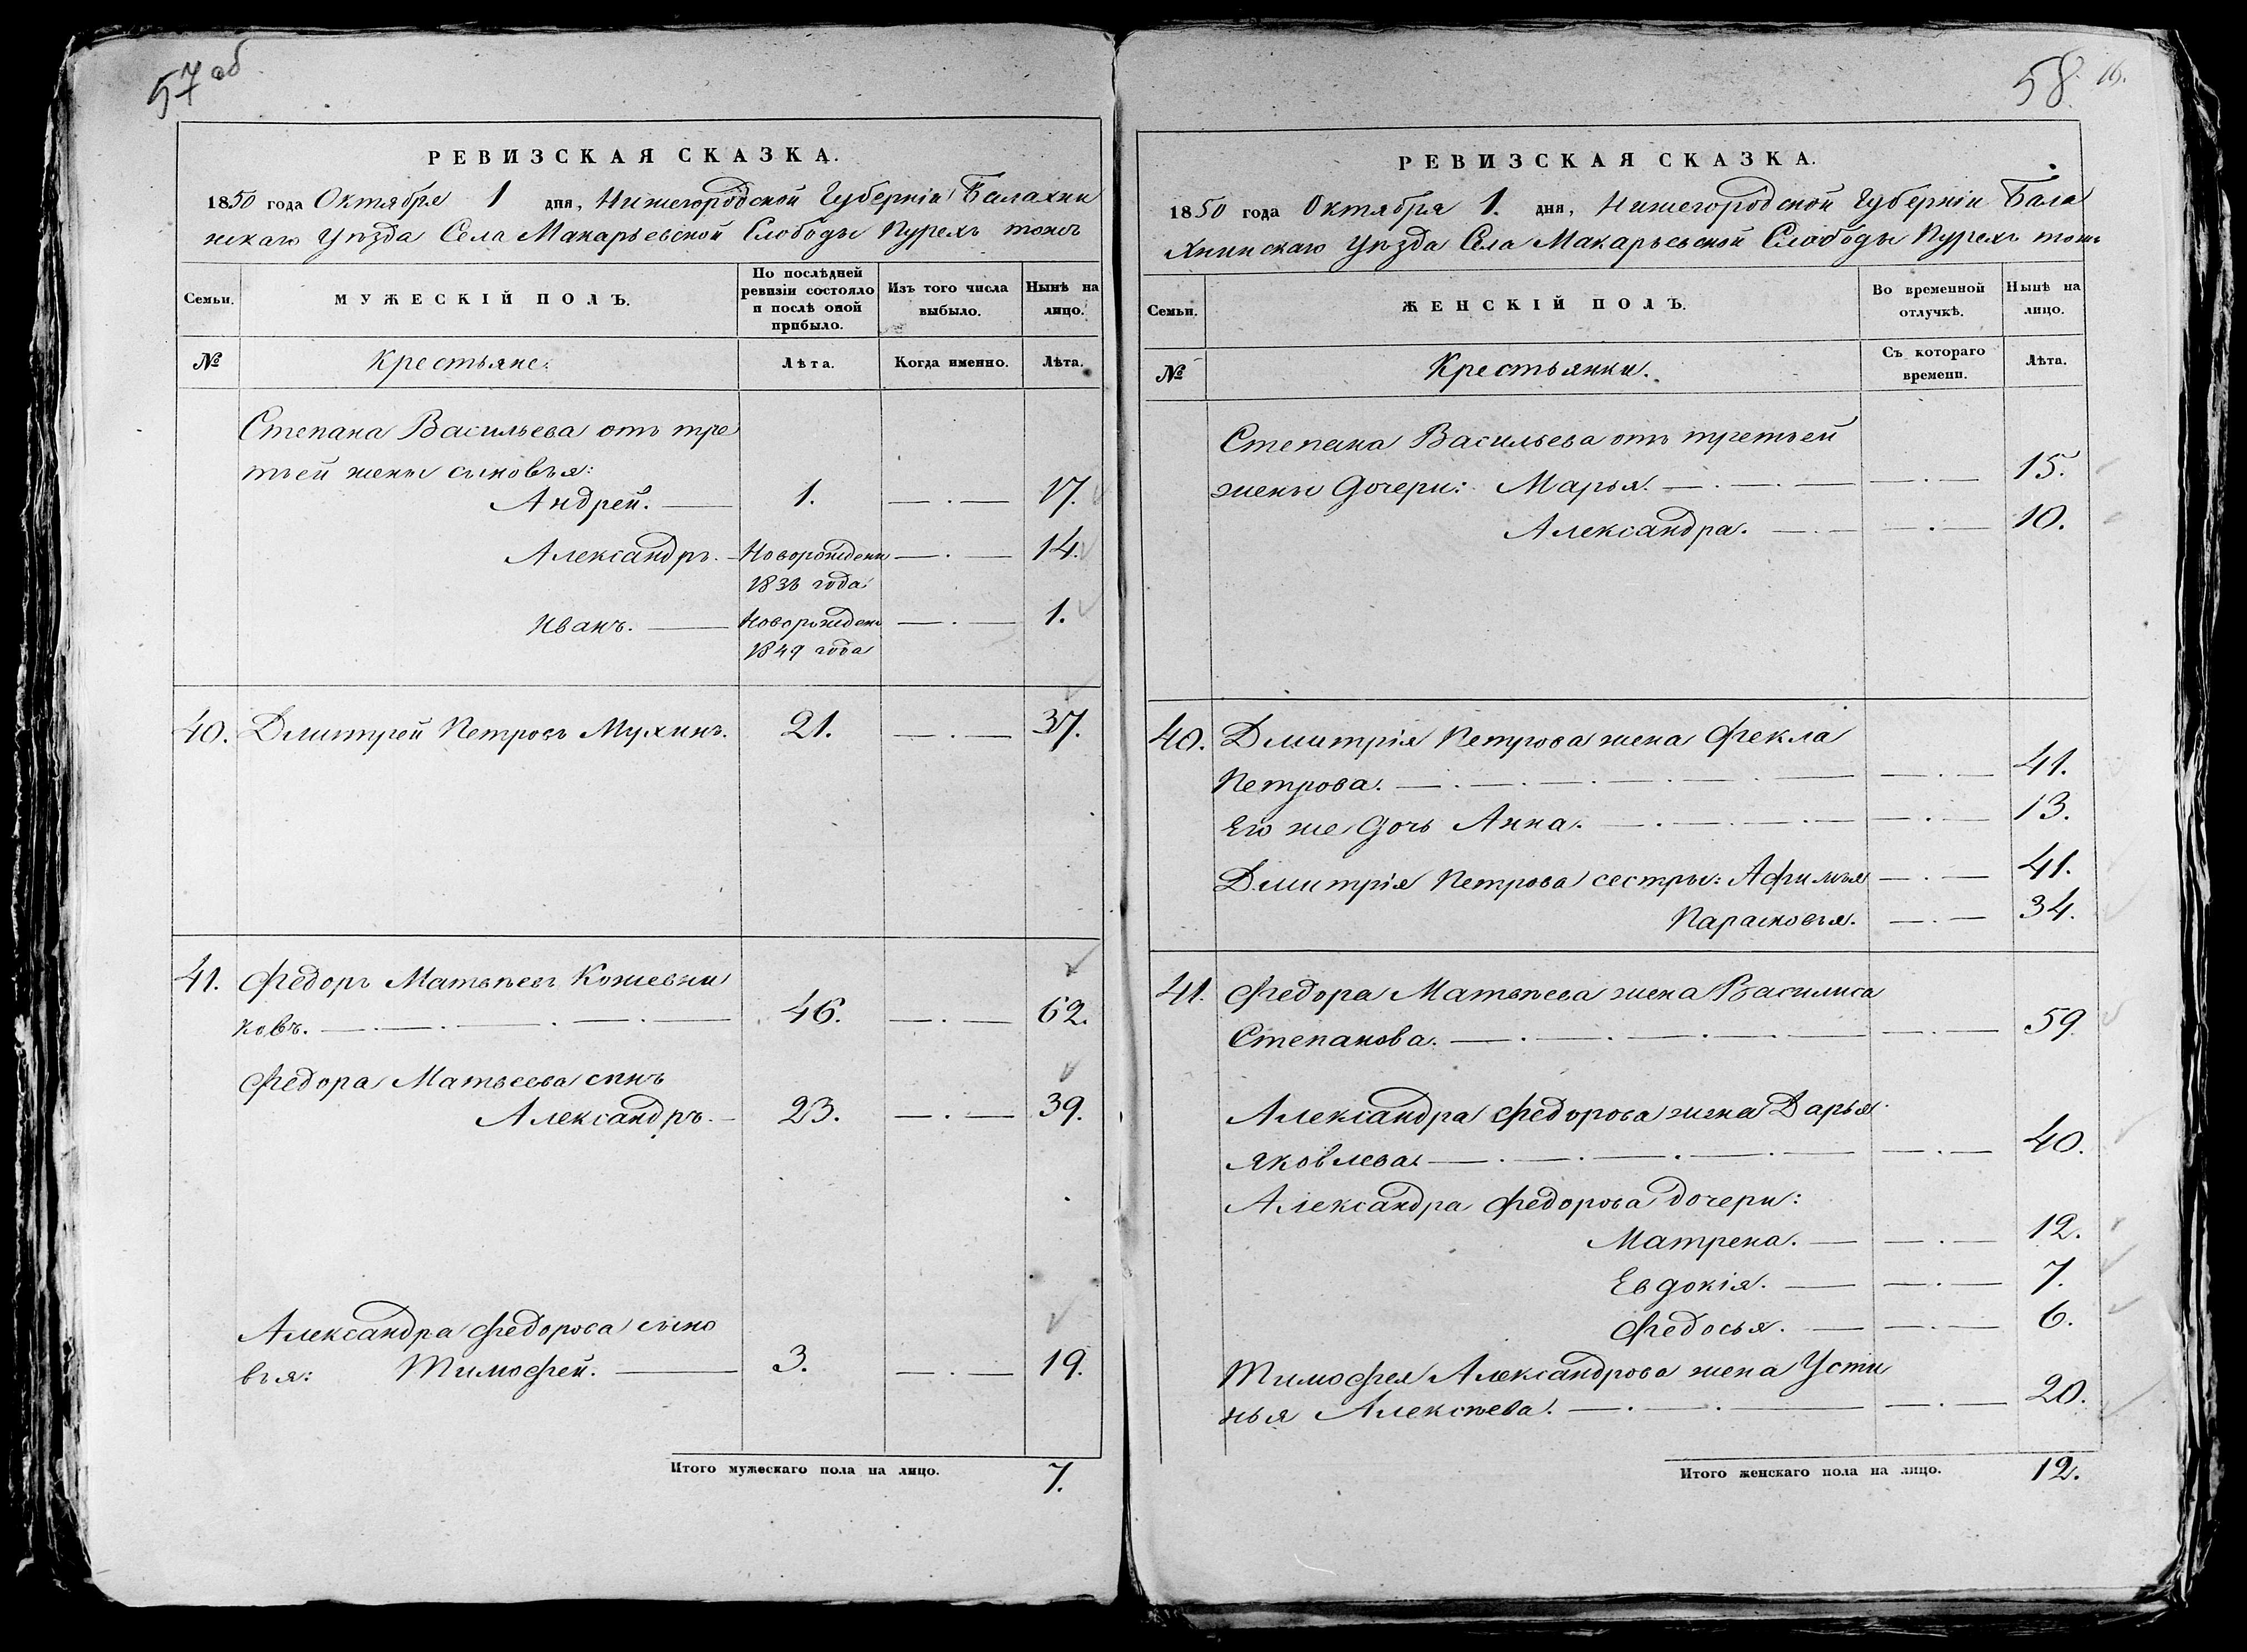 57 об
РЕВИЗСКАЯ СКАЗКА.
1850 года Октября 1 дня, Нижегородской Губерніи Балахни
нскаго Уѣзда Села Макарьевской Слободы Пурехъ тожъ
Семьи.
МУЖЕСКІЙ ПОЛЪ.
По послѣдней
ревизіи состояло
и послѣ оной
прибыло.
Изъ того числа
выбыло.
Нынѣ на
лицо.
№
Крестьяне.
Лѣта.
Когда именно.
Лѣта.
Степана Васильева отъ тре
тьей жены сыновья:
Андрей. 1. 17.
Александръ. Новорожденн 14.
1836 года
Иванъ. Новорожден 1.
1849 года
40. Дмитрей Петровъ Мухинъ. 21. 37.
41. Федоръ Матвѣевъ Кожевни
ковъ. 46. 62.
Федора Матвеева сынъ
Александръ. 23. 39.
Александра Федорова сыно
вья: Тимофей. 3. 19.
Итого мужескаго пола на лицо. 7.
58. 16.
РЕВИЗСКАЯ СКАЗКА.
1850 года Октября 1. дня, Нижегородской Губерніи Бала
хнинскаго Уѣзда Села Макарьевской Слободы Пурехъ тожъ
Семьи.
ЖЕНСКІЙ ПОЛЪ.
Во временной
отлучкѣ.
Нынѣ на
лицо.
№
Крестьянки.
Съ котораго
времени.
Лѣта.
Степана Васильева отъ третьей
жены дочери: Марья. 15.
Александра. 10.
40. Дмитрія Петрова жена Фекла
Петрова. 41.
Его же дочь Анна. 13.
Дмитрія Петрова сестры: Афимья 41.
Парасковья. 34.
41. Федора Матвѣева жена Василиса
Степанова. 59.
Александра Федорова жена Дарья
Яковлева. 40.
Александра Федорова дочери:
Матрена. 12.
Евдокія. 7.
Федосья. 6.
Тимофея Александрова жена Усти
нья Алексѣева. 20.
Итого женскаго пола на лицо. 12.